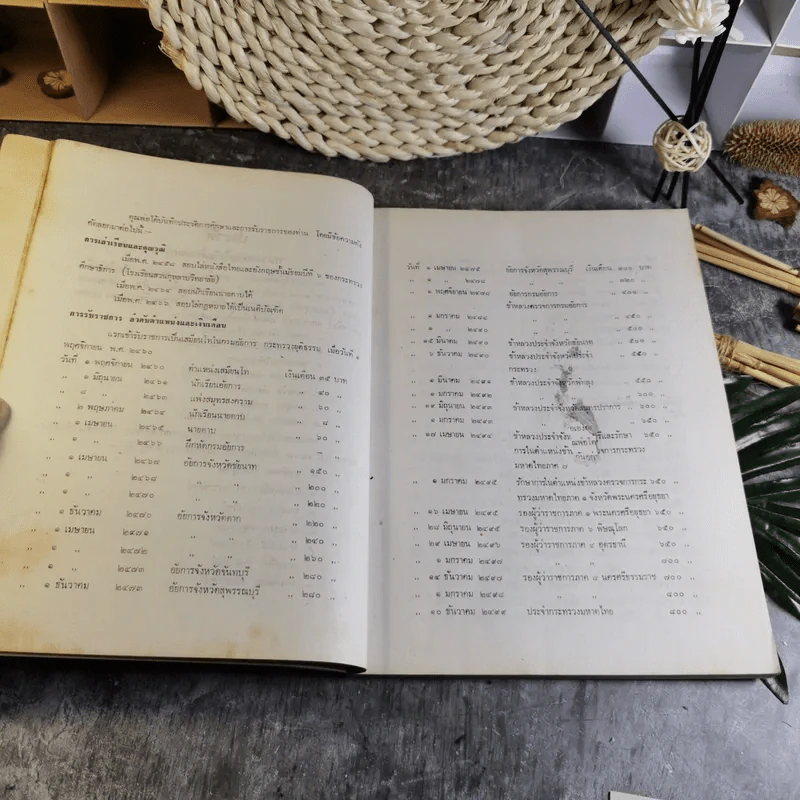 คุณพ่อได้บันทึกประวัติการศึกษาและการรับราชการของท่าน โดยมีข้อความดัง
คัดลอกมาต่อไปนี้ :-
การเล่าเรียนและคุณวุฒิ
เมื่อพ.ศ. ๒๔๕๘ สอบไล่หนังสือไทยและอังกฤษชั้นมัธยมปีที่ ๖ ของกระทรวง
ศึกษาธิการ (โรงเรียนสวนกุหลาบวิทยาลัย)
เมื่อพ.ศ. ๒๔๖๔ สอบนักเรียนนายดาบได้
เมื่อพ.ศ. ๒๔๖๖ สอบไล่กฎหมายได้เป็นเนติบัณฑิต
การรับราชการ ลำดับตำแหน่งและเงินเดือน
แรกเข้ารับราชการเป็นเสมียนโทในกรมอัยการ กระทรวงยุติธรรม เมื่อวันที่ ๑
พฤศจิกายน พ.ศ. ๒๔๖๐
วันที่ ๑ พฤศจิกายน ๒๔๖๐ ตำแหน่งเสมียนโท เงินเดือน ๓๕ บาท
,, ๑ มิถุนายน ๒๔๖๑ นักเรียนอัยการ ,, ๔๐ ,,
,, ๘ ,, ๒๔๖๓ แพ่งสมุทรสงคราม ,, ๖๐ ,,
,, ๒ พฤษภาคม ๒๔๖๔ นักเรียนนายดาบ ,, ๘ ,,
,, ๑ เมษายน ๒๔๖๕ นายดาบ ,, ๖๐ ,,
,, ๑ ,, ๒๔๖๖ ฝึกหัดกรมอัยการ ,, – ,,
,, ๑ เมษายน ๒๔๖๗ อัยการจังหวัดชัยนาท ,, ๑๕๐ ,,
,, ๑ ,, ๒๔๖๘ ,, ,, ,, ๒๐๐ ,,
,, ๑ ,, ๒๔๗๐ ,, ,, ,, ๒๒๐ ,,
,, ๑ ธันวาคม ๒๔๗๐ อัยการจังหวัดตาก ,, ๒๒๐ ,,
,, ๑ เมษายน ๒๔๗๑ ,, ,, ,, ๒๔๐ ,,
,, ๑ ,, ๒๔๗๒ ,, ,, ,, ๒๖๐ ,,
,, ๑ ,, ๒๔๗๓ อัยการจังหวัดจันทบุรี ,, ๒๘๐ ,,
,, ๑ ธันวาคม ๒๔๗๓ อัยการจังหวัดสุพรรณบุรี ,, ๒๘๐ ,,
วันที่ ๑ เมษายน ๒๔๗๕ อัยการจังหวัดสุพรรณบุรี เงินเดือน บาท
,, ๑ ,, ,, ,,
,, ๑ พฤศจิกายน อัยการกรมอัยการ ,,
ข้าหลวงตรวจการกรมอัยการ
,, ๑ มกราคม ๒๔๘๔ ,, ,, ๔๕๐ ,,
,, ๑ ,, ๒๔๙๐ ,, ,, ๕๐๐ ,,
,, ๑๕ มีนาคม ๒๔๙๐ ข้าหลวงประจำจังหวัดชัยนาท ๕๐๐ ,,
,, ๖ ธันวาคม ๒๔๙๐ ข้าหลวงตรวจจังหวัดประจำ ๕๕๐ ,,
กระทรวง
,, ๑ มีนาคม ๒๔๙๑ ข้าหลวงประจำจังหวัดพัทลุง ,, ๕๕๐ ,,
,, ๑ มกราคม ๒๔๙๒ ,, ๖๐๐ ,,
,, ๑๔ มิถุนายน ๒๔๙๒ ข้าหลวงประจำจังหวัดสมุทรปราการ ๖๐๐ ,,
,, ๑ มกราคม ๒๔๙๓ ๖๕๐ ,,
,, ๑๗ เมษายน ๒๔๙๔ ข้าหลวงประจำจังหวัด และรักษา ๖๕๐ ,,
การในตำแหน่งข้า การกระทรวง
มหาดไทยภาค ๗
,, ๑ มกราคม ๒๔๙๕ รักษาการในตำแหน่งข้าหลวงตรวจการกระ ๖๕๐ ,,
ทรวงมหาดไทยภาค ๑ จังหวัดพระนครศรีอยุธยา
,, ๑๖ เมษายน ๒๔๙๕ รองผู้ว่าราชการภาค ๑ พระนครศรีอยุธยา ๖๕๐ ,,
,, ๒๘ มิถุนายน ๒๔๙๕ รองผู้ว่าราชการภาค ๖ พิษณุโลก ๖๕๐ ,,
,, ๒๙ เมษายน ๒๔๙๖ รองผู้ว่าราชการภาค ๔ อุดรธานี ๖๕๐ ,,
,, ๑ มกราคม ๒๔๙๗ ,, ,, ๗๐๐ ,,
,, ๑๔ ธันวาคม ๒๔๙๗ รองผู้ว่าราชการภาค ๘ นครศรีธรรมราช ๗๐๐ ,,
,, ๑ มกราคม ๒๔๙๘ ,, ,, ๘๐๐ ,,
,, ๑๐ ธันวาคม ๒๔๙๙ ประจำกระทรวงมหาดไทย ๘๐๐ ,,